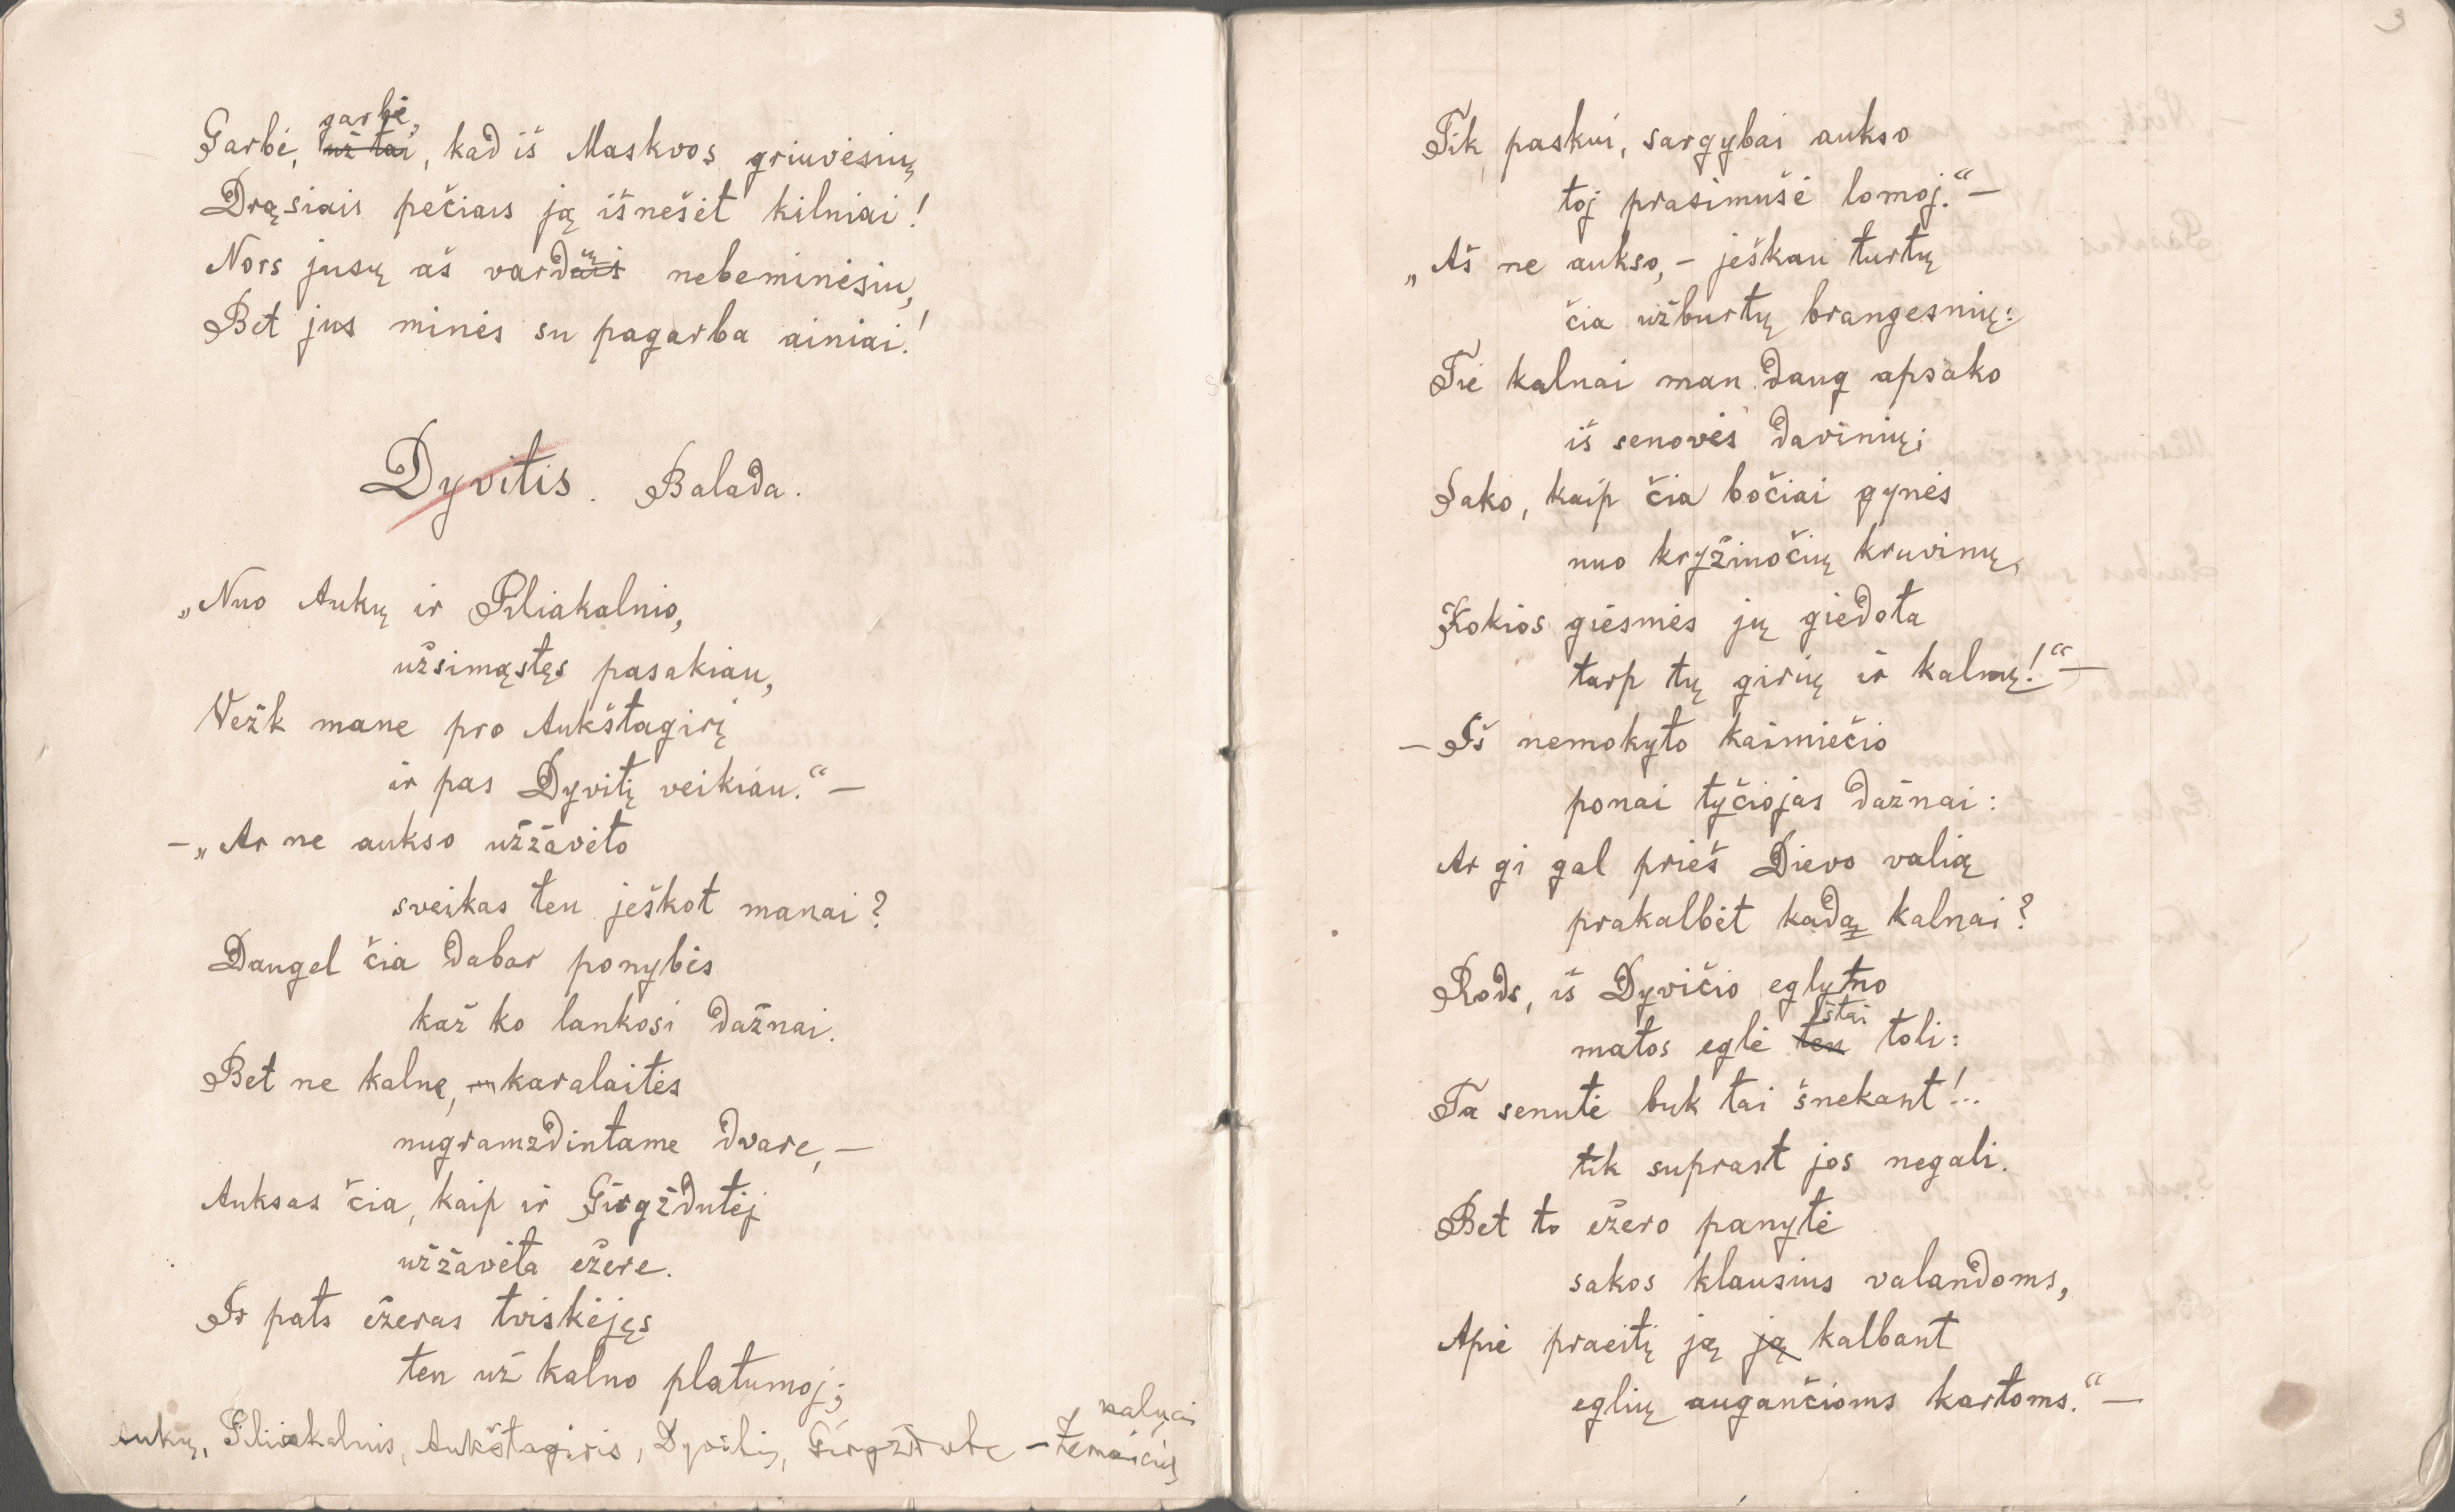 Garbė, garbė, už tai, kad iš Maskvos griuvėsių
Drąsiais pečiais ją išnešėt kilniai!
Nors jusų aš vardų nebeminėsiu,
Bet jus minės su pagarba ainiai!
Dyvitis. Balada.
„Nuo Aukų ir Piliakalnio,
užsimąstęs pasakiau,
Vežk mane pro Aukštagirį
ir pas Dyvitį veikiau.“ —
— „Ar ne aukso užžavėto
sveikas ten ješkot manai?
Daugel čia dabar ponybės
kaž ko lankosi dažnai.
Bet ne kalne, karalaitės
nugramzdintame dvare, —
Auksas čia, kaip ir Girgždutėj
užžavėta ežere.
Ir pats ežeras tviskėjęs
ten už kalno platumoj;
Aukų, Piliakalnis, Aukštagiris, Dyvitis, Girgždutė — Žemaičių kalnai
3
Tik paskui, sargybai aukso
toj prasimušė lomoj.“ —
„Aš ne aukso, — ješkau turtų
čia užburtų brangesnių:
Tie kalnai man daug apsako
iš senovės davinių;
Sako, kaip čia bočiai gynės
nuo kryžiuočių kruvinų,
Kokios giesmės jų giedota
tarp tų girių ir kalnų!“ —
— Iš nemokyto kaimiečio
ponai tyčiojas dažnai:
Ar gi gal prieš Dievo valią
prakalbėt kadą kalnai?
Rods, iš Dyvičio eglyno
matos eglė ten štai toli:
Ta senutė buk tai šnekant!..
tik suprast jos negali.
Bet to ežero panytė
sakos klausius valandoms,
Apie praeitį ją ją kalbant
eglių augančioms kartoms.“ —